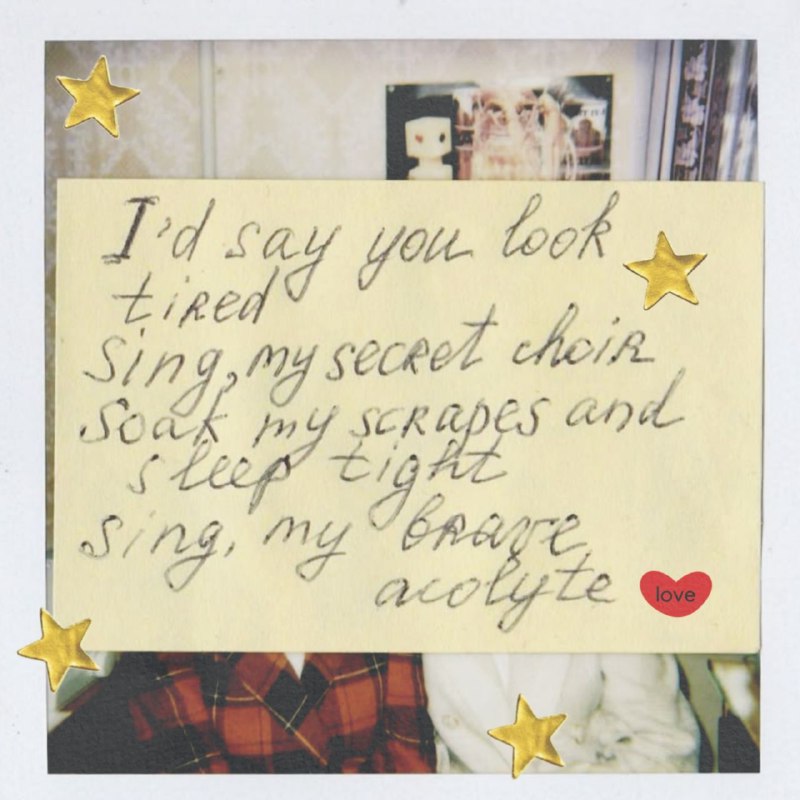 I'd say you look
tired
Sing, my secret choir
Soak my scrapes and
sleep tight
Sing, my brave
acolyte
love